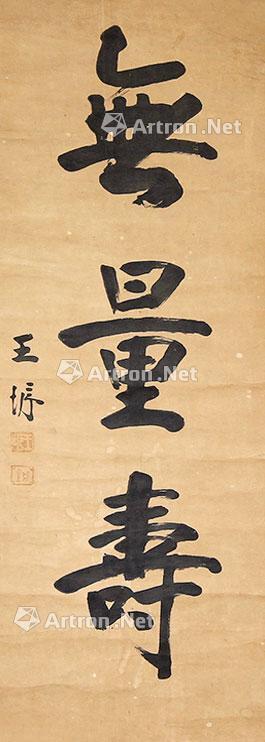 無量壽
王埓
Artron.Net
Artron.Net
Artron.Net